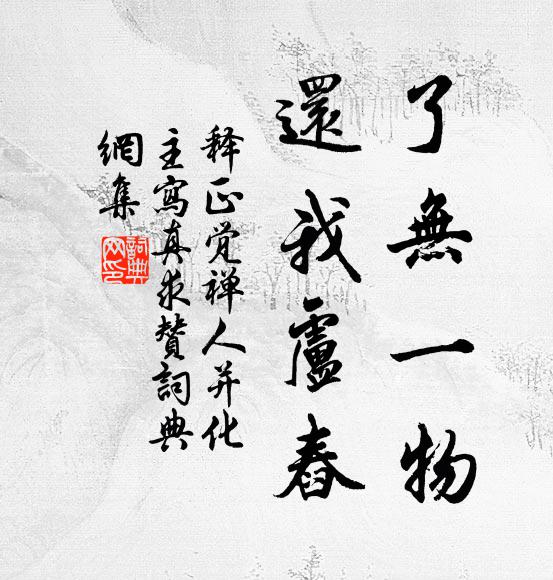 了無一物
還我盧舂
释正觉禅人并化
主寫真求贊詞典
網集
詞典網印